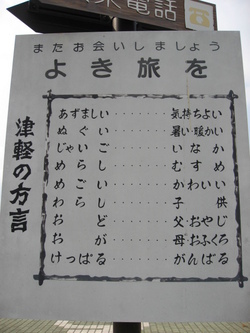 電話
またお会いしましょう
よき旅を
津軽の方言
あずましい‥‥‥気持ちよい
ぬぐい‥‥‥暑い・暖かい
じゃいご‥‥‥いなか
めらし‥‥‥むすめ
めごい‥‥‥かわいい
わらし‥‥‥子供
おど‥‥‥父・おやじ
おが‥‥‥母・おふくろ
けっぱる‥‥‥がんばる